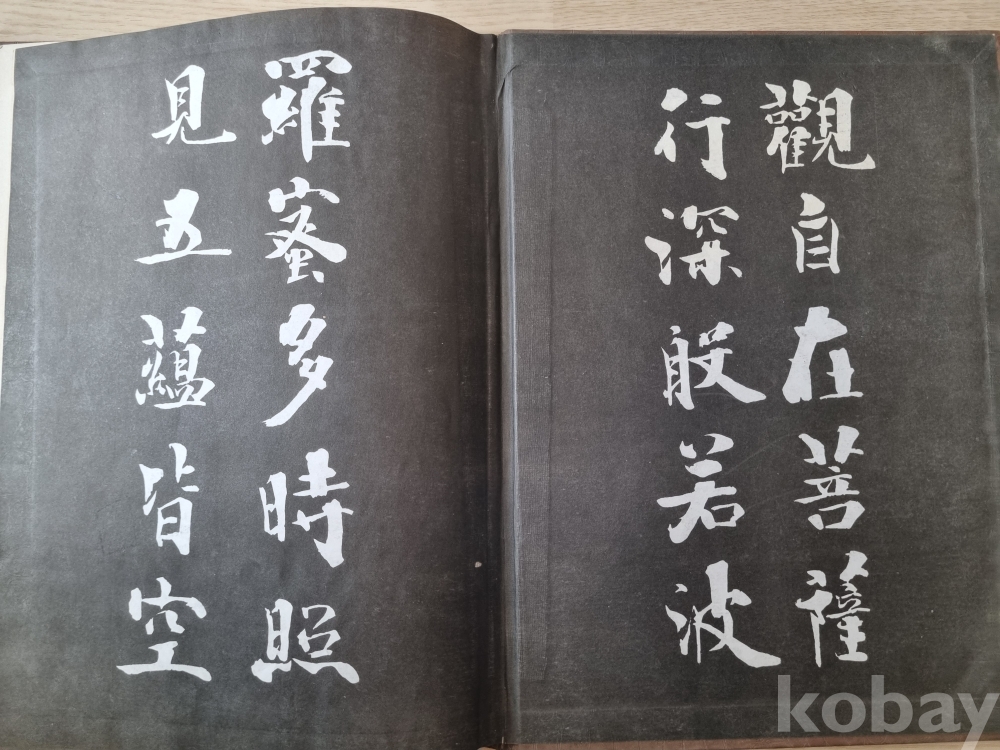 觀自在菩薩
行深般若波
羅蜜多時照
見五蘊皆空
kobay